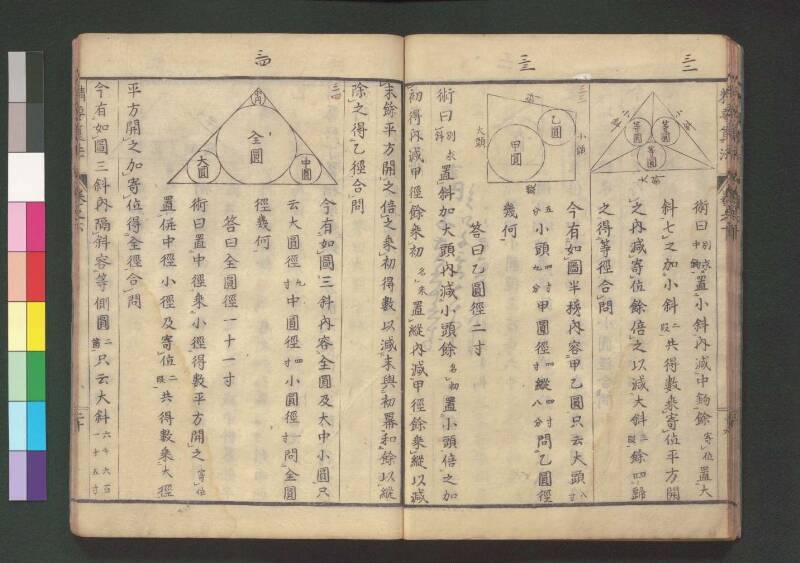 三二
中鈎
小斜
小斜
等圓
等圓
等圓
大斜
術曰別求中鈎置小斜内減中鈎餘寄位置大
斜七之加小斜二段共得數乘寄位平方開
之内減寄位餘倍之以減大斜二段餘四歸
之得等徑合問
三三
小頭
大頭
縦
乙圓
甲圓
今有如圖半梯内容甲乙圓只云大頭八寸
五分小頭四寸九分甲圓徑四寸縦四寸八分問乙圓徑
幾何
答曰乙圓徑二寸
術曰別求斜置斜加大頭内減小頭餘名初置小頭倍之加
初得内減甲徑餘乘初名末置縦内減甲徑餘乘縦以減
末餘平方開之倍之乘初得數以減末與初冪和餘以縦
除之得乙徑合問
三四
小圓
全圓
大圓
中圓
今有如圖三斜内容全圓及大中小圓只
云大圓徑九寸中圓徑四寸小圓徑寸問全圓
徑幾何
答曰全圓徑一十一寸
術曰置中徑乘小徑得數平方開之寄位
置併中徑小徑及寄位二段共得數乘大徑
平方開之加寄位得全徑合問
今有如圖三斜内隔斜容等側圓二箇只云大斜六千六百一十五寸